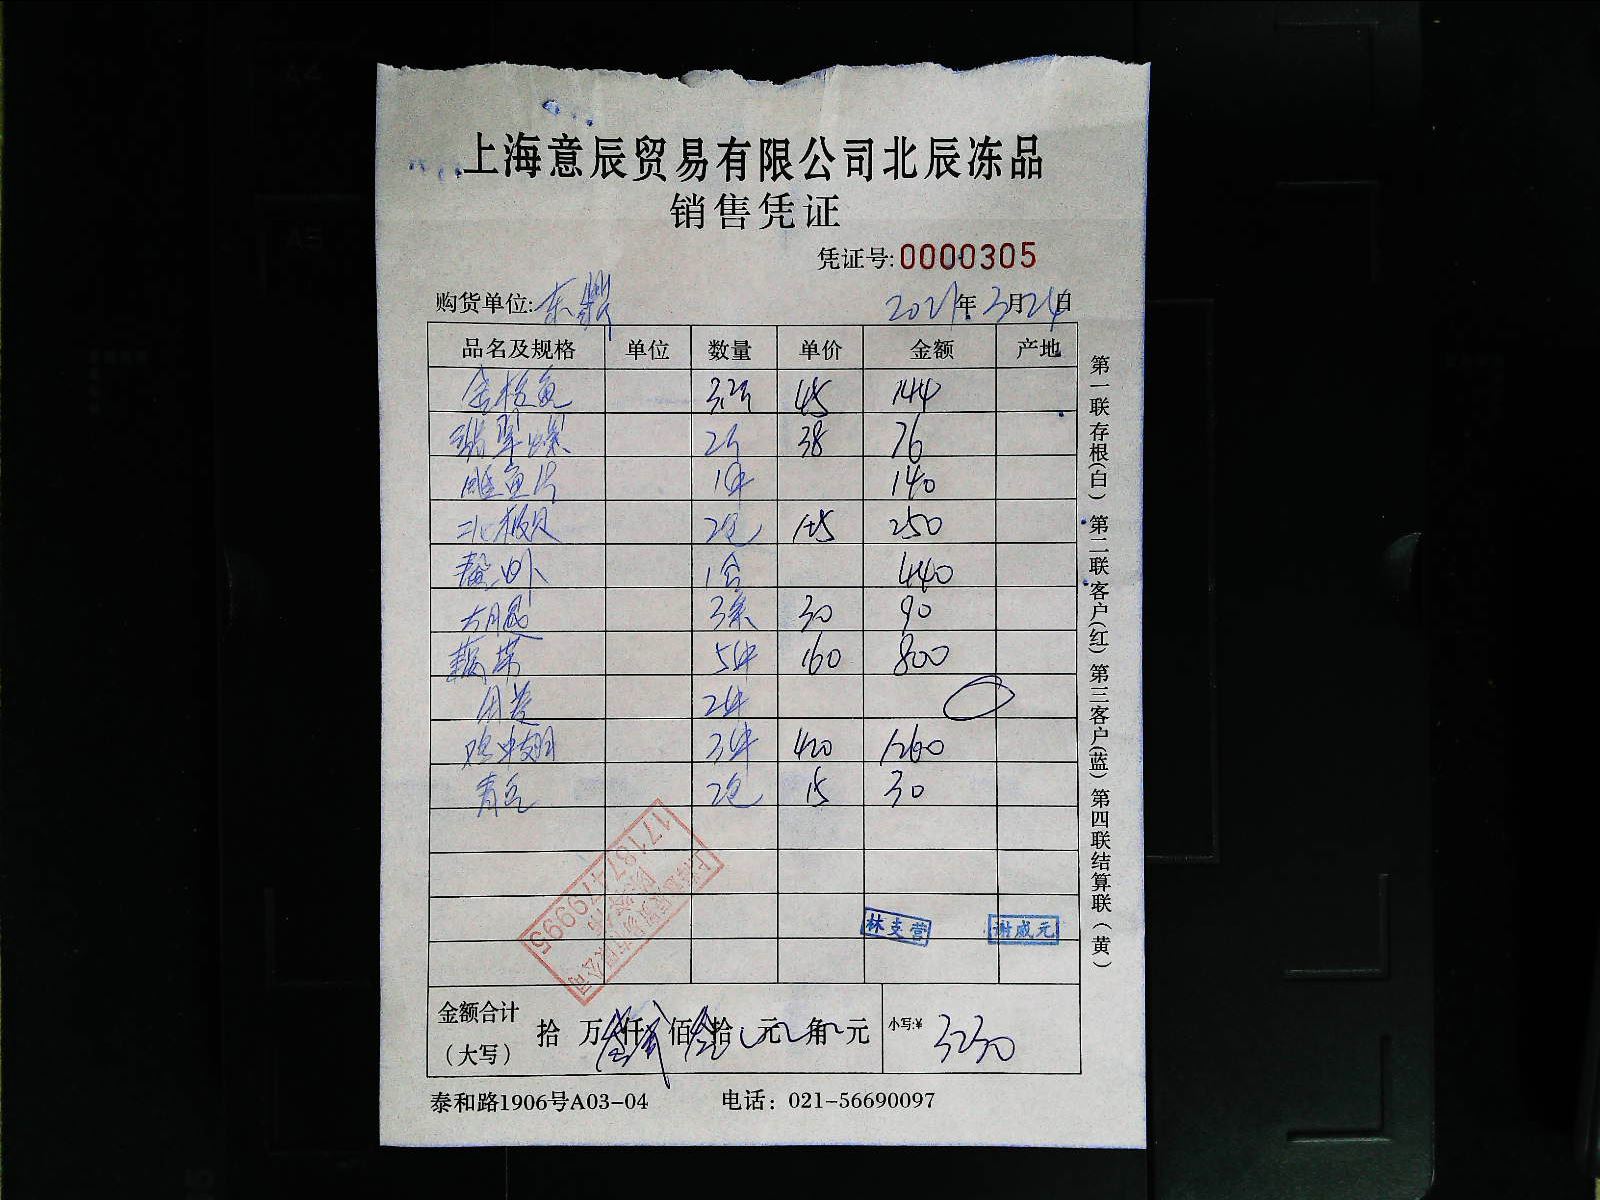 上海意辰贸易有限公司北辰冻品
销售凭证
凭证号:0000305
购货单位:东 2021年3月24日
品名及规格 单位 数量 单价 金额 产地
金枪鱼 3.2斤 45 144
翡翠螺 2斤 38 76
鱼片 1件 140
北极贝 2包 125 250
1合 440
3条 30 90
藕带 5件 160 800
2件
鸡中翅 3件 420 1260
青豆 2包 15 30
17187479995
林支营 谢成元
金额合计
(大写)
拾 万叁仟贰佰叁拾元角元 小写:¥ 3230
泰和路1906号A03-04 电话：021-56690097
第一联存根(白) 第二联客户(红) 第三客户(蓝) 第四联结算联(黄)